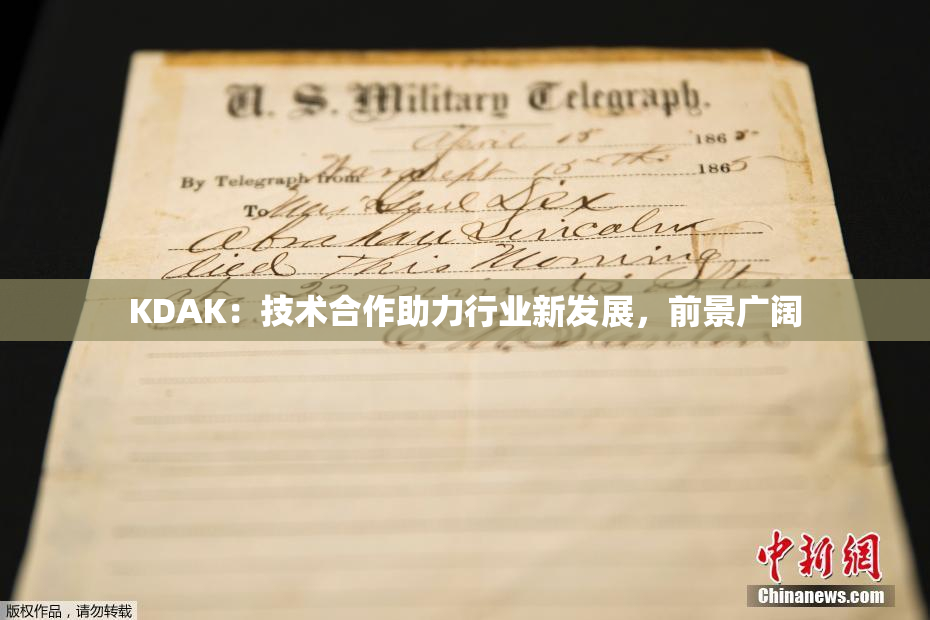 U. S. Military Telegraph.
April 15 1865
By Telegraph from War Dept 15th 1865
To Maj Genl Dix
Abraham Lincoln
died This Morning
at 22 minutes after
KDAK：技术合作助力行业新发展，前景广阔
E. M. Stanton
中新网
Chinanews.com
版权作品，请勿转载